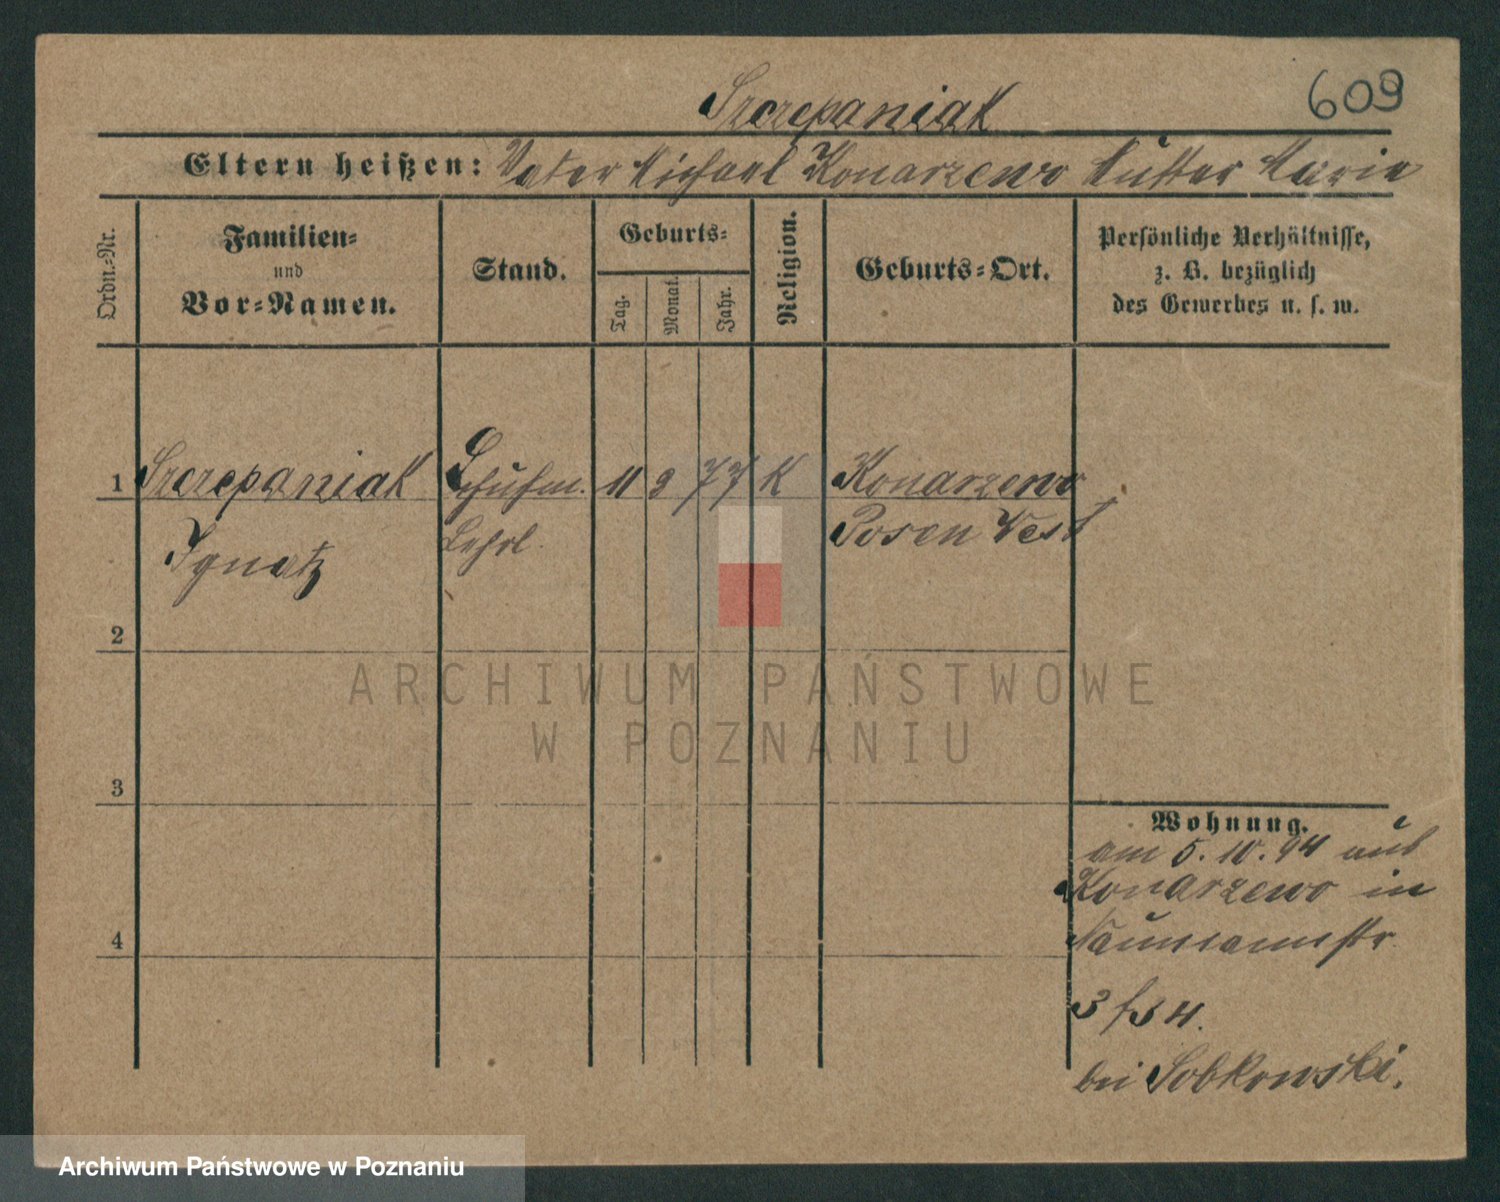 Szczepaniak
609
Eltern heißen: Vater Michael Konarzewo Mutter Marie
Ordn.-Nr.
Familien-
und
Vor-Namen.
Stand.
Geburts-
Tag.
Monat.
Jahr.
Religion.
Geburts-Ort.
Persönliche Verhältnisse,
z. B. bezüglich
des Gewerbes u. s. w.
1 Szczepaniak Schuhm. 11 9 77 K Konarzewo
Ignatz Lehrl. Posen West
2
3
4
Wohnung.
am 5.10.94 aus
Konarzewo in
Naumannstr.
bei Sobkowski.
ARCHIWUM PAŃSTWOWE
W POZNANIU
Archiwum Państwowe w Poznaniu